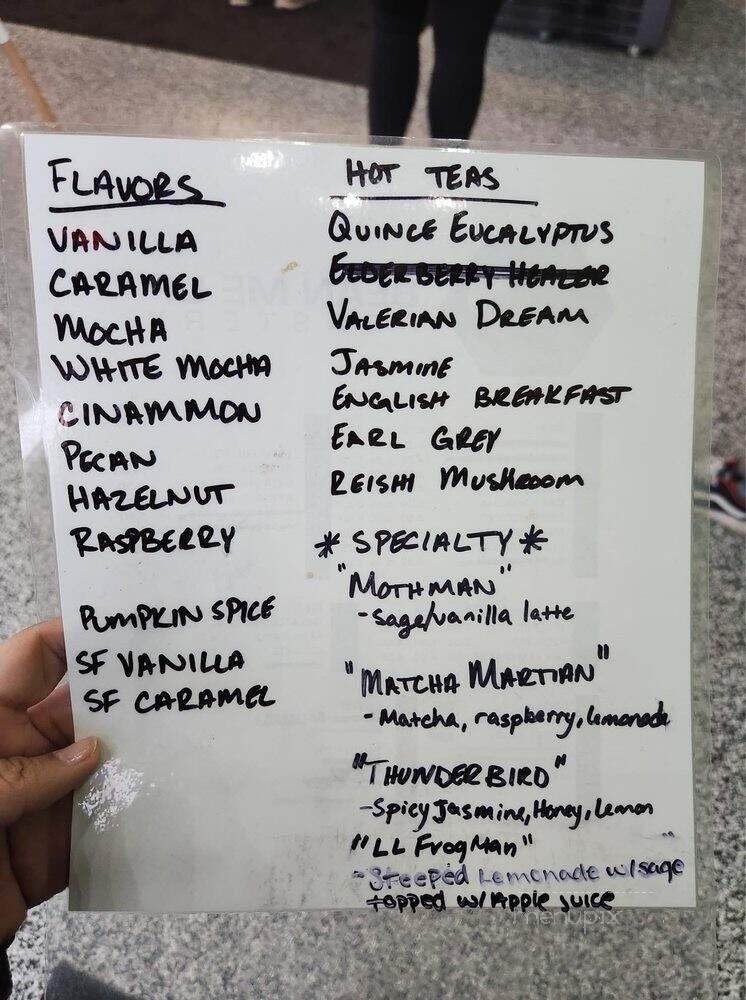 FLAVORS
VANILLA
CARAMEL
MOCHA
WHITE MOCHA
CINAMMON
PECAN
HAZELNUT
RASPBERRY
PUMPKIN SPICE
SF VANILLA
SF CARAMEL
HOT TEAS
QUINCE EUCALYPTUS
ELDERBERRY HEALER
VALERIAN DREAM
JASMINE
ENGLISH BREAKFAST
EARL GREY
REISHI MUSHROOM
* SPECIALTY *
"MOTHMAN"
- Sage/vanilla latte
"MATCHA MARTIAN"
- Matcha, raspberry, lemonade
"THUNDERBIRD"
- Spicy Jasmine, Honey, Lemon
"LL FrogMan"
- Steeped Lemonade w/sage
topped w/ Apple juice
menupix